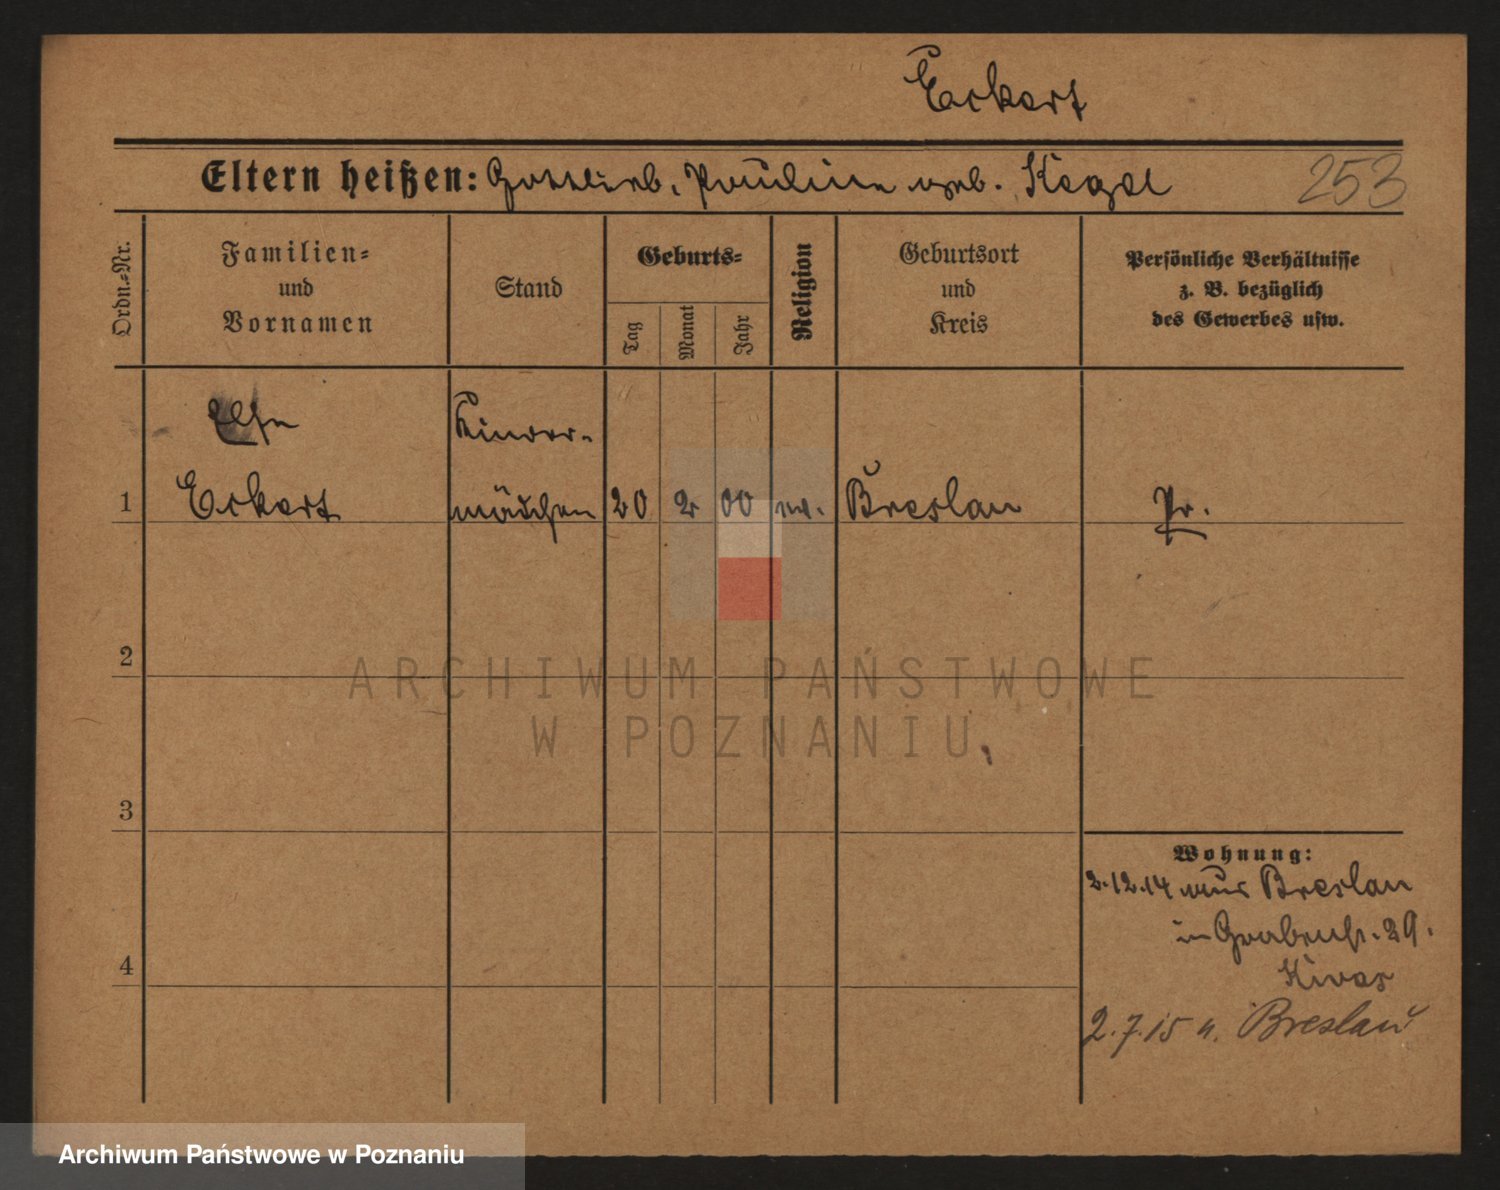 Eckert
Eltern heißen: Gottlieb, Pauline geb. Kegel
253
Ordn.-Nr.
Familien-
und
Vornamen
Stand
Geburts-
Tag
Monat
Jahr
Religion
Geburtsort
und
Kreis
Persönliche Verhältnisse
z. B. bezüglich
des Gewerbes usw.
Else
Kinder-
1 Eckert mädchen 20 2 00 ev. Breslau Pr.
2
ARCHIWUM PAŃSTWOWE
W POZNANIU
3
Wohnung:
2.12.14 aus Breslau
in Grabenstr. 29.
4
2.7.15 n. Breslau
Archiwum Państwowe w Poznaniu